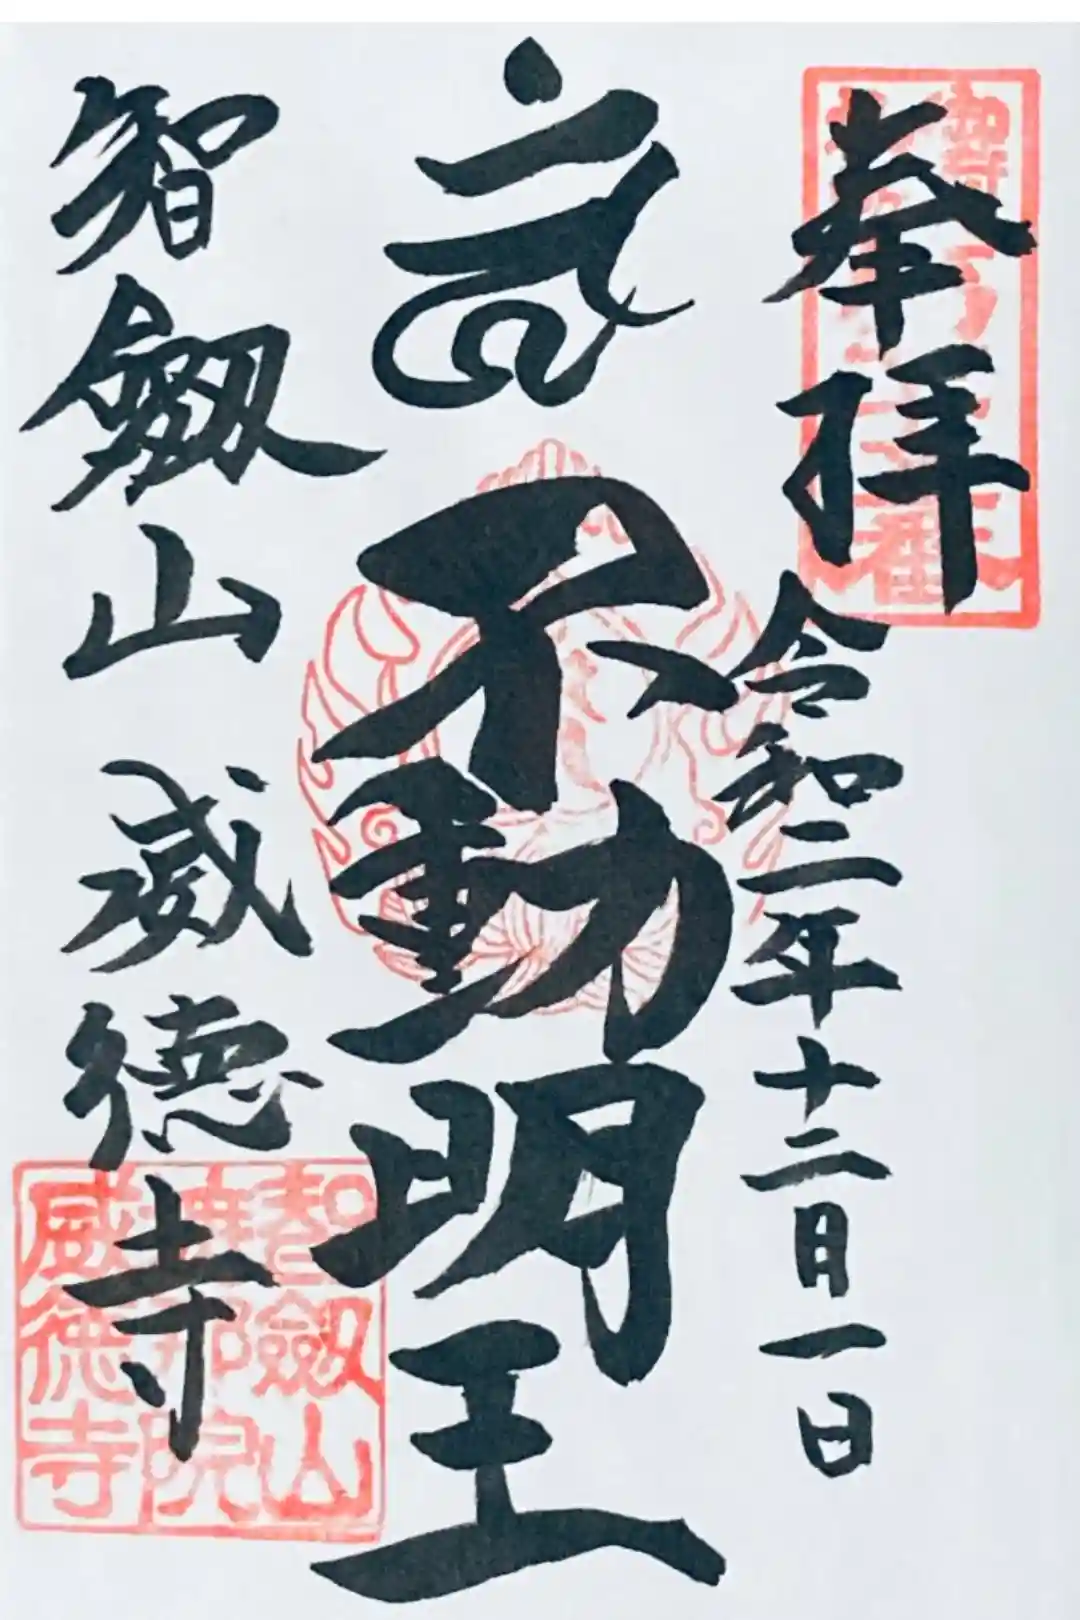 奉拝
令和二年十二月一日
不動明王
智劔山 威徳寺
智劔山
院
威徳寺